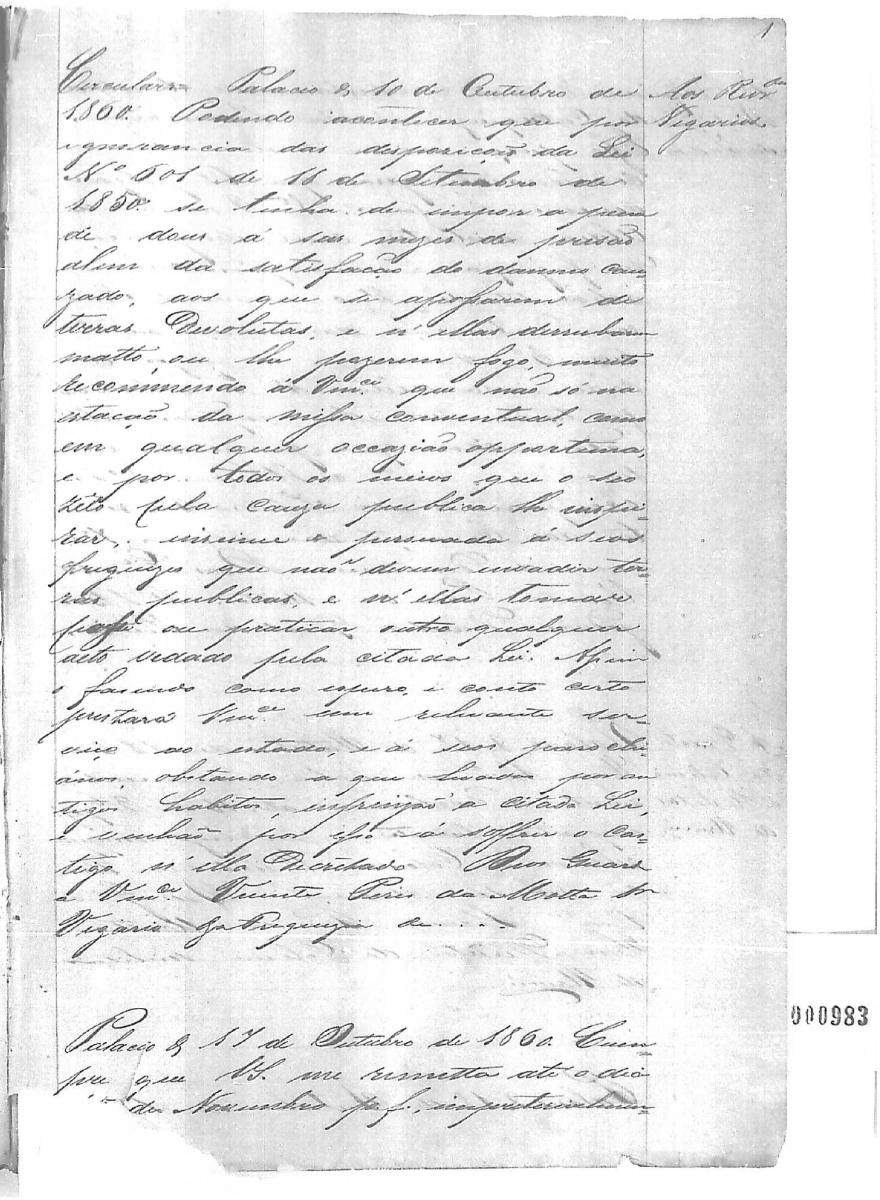 1
Circular Palacio & 10 de Outubro de
1860. Podendo acontecer que por
ignorancia das desposições da Lei
Nº 601 de 18 de Setembro de
1850. se tenha de impor a pena
de dous á seis mezes de prisão
alem da satisfação do damno cau-
zado, aos que se apossarem de
terras Devolutas, e n'ellas derrubarem
matto, ou lhe pozerem fogo, muito
recommendo á Vmce. que não só na
estação da missa conventual, como
em qualquer occazião opportuna,
e por todos os meios que o seo
zêlo pela cauza publica lhe inspi-
rar, insinue e persuada á seos
freguezes que não devem invadir ter-
ras publicas, e n'ellas tomar
posse ou praticar outro qualquer
acto vedado pela citada Lei. Assim
o fasendo como espero, e conto certo
prestará Vmce. um relevante ser-
viço ao estado, e á seos parochi-
anos, obstando a que levados por an
tigos habitos, infrinjão a citada Lei,
e venhão por isso á soffrer o cas-
tigo n'ella Decretado Deos Guard
e Vmce. Vicente Pires da Motta Snr
Vigario da Freguezia de....
Aos Revdos
Vigarios
Palacio & 17 de Outubro de 1860. Cum-
pre que VS. me remetta até o dia
de Novembro p.f., impreterivelmen-
000983